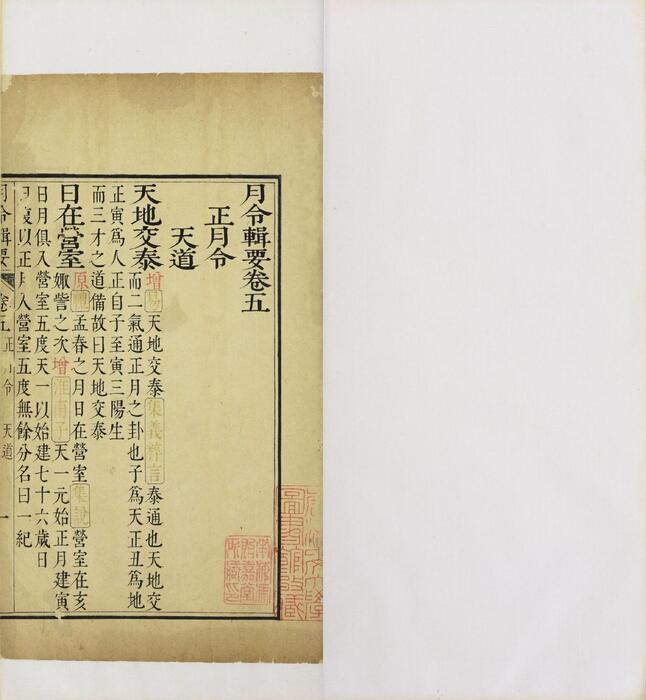 月令輯要卷五
正月令
天道
天地交泰增易天地交泰集義粹言泰通也天地交
而二氣通正月之卦也子爲天正丑爲地
正寅爲人正自子至寅三陽生
而三才之道備故曰天地交泰
日在營室原禮孟春之月日在營室集說營室在亥
娵訾之次增淮南子天一元始正月建寅
日月俱入營室五度天一以始建七十六歲日
月復以正月入營室五度無餘分名曰一紀
月令輯要 卷五 正月令 天道 一
圖書館藏